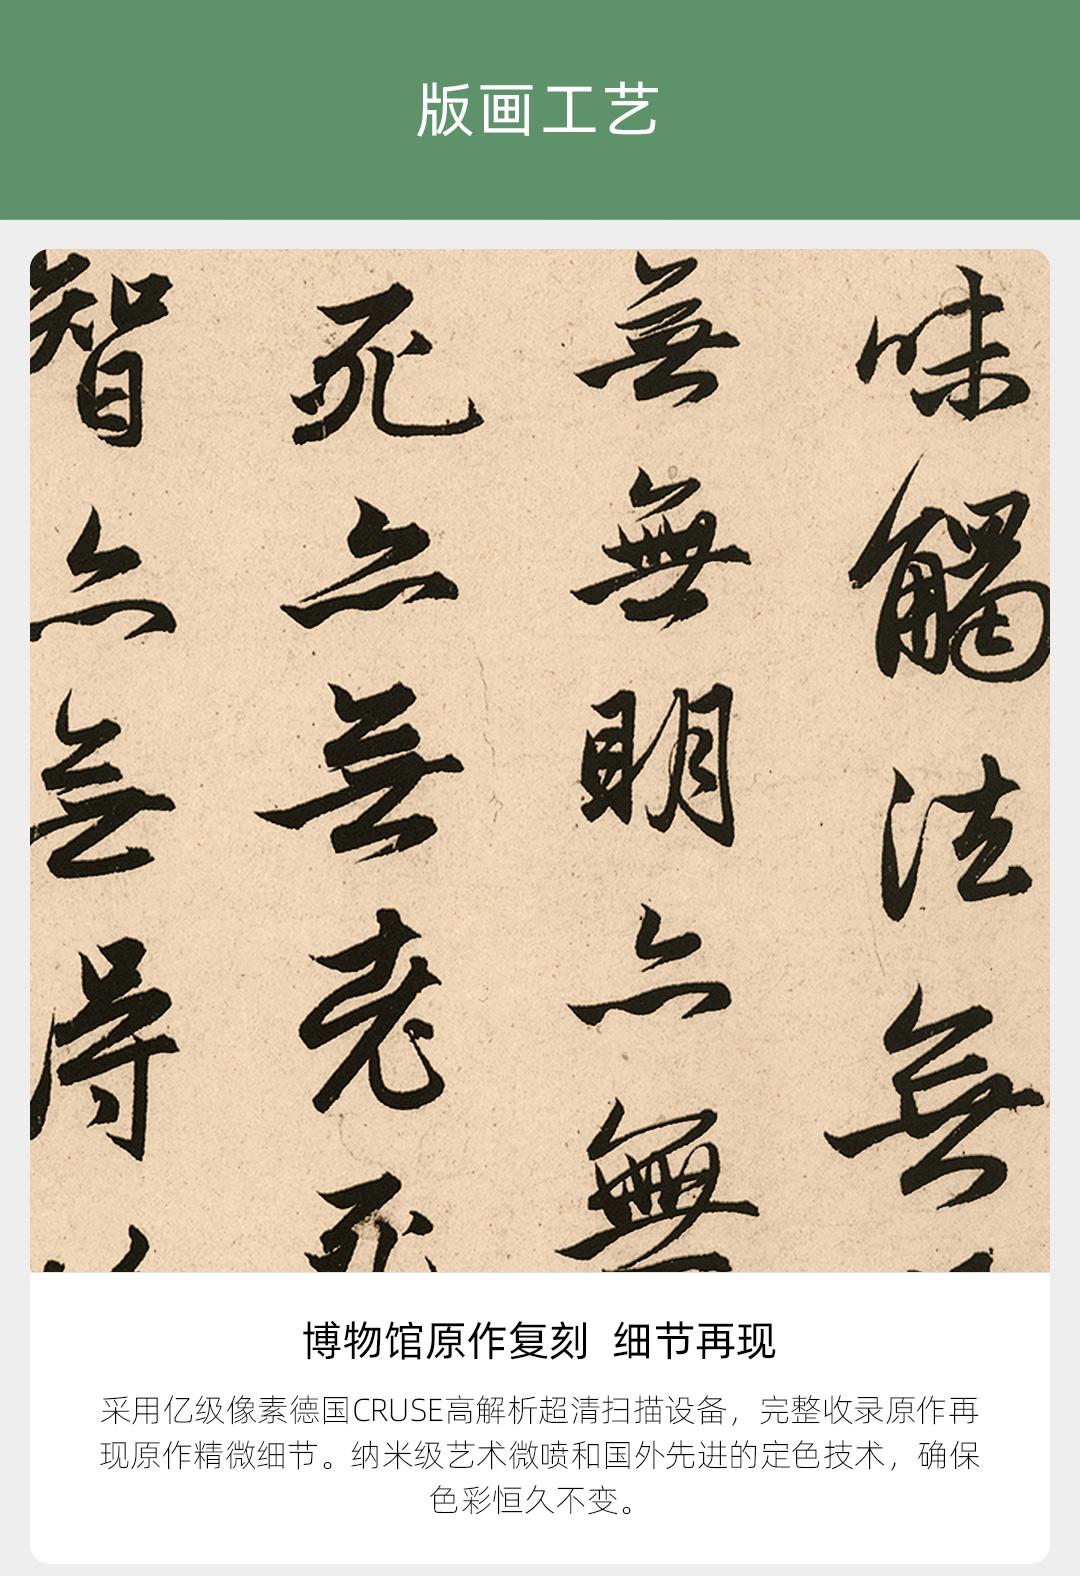 版画工艺
味觸法無
無無明亦無
死亦無老死
智亦無得
博物馆原作复刻 细节再现
采用亿级像素德国CRUSE高解析超清扫描设备，完整收录原作再
现原作精微细节。纳米级艺术微喷和国外先进的定色技术，确保
色彩恒久不变。